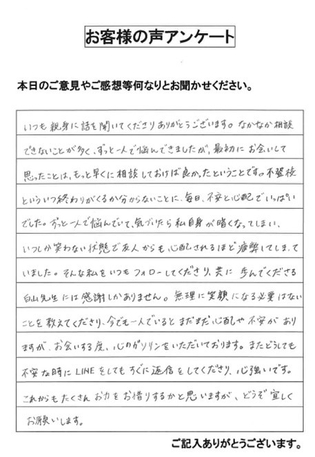 お客様の声アンケート
本日のご意見やご感想等何なりとお聞かせください。
いつも親身に話を聞いてくださりありがとうございます。なかなか相談
できないことが多く、ずっと一人で悩んできましたが、最初にお会いして
思ったことは、もっと早くに相談しておけば良かったということです。不登校
といういつ終わりがくるか分からないことに、毎日、不安と心配でいっぱい
でした。ずっと一人で悩んでいて、気づいたら私自身が暗くなってしまい、
いつしか笑わない状態で友人からも心配されるほど疲弊してしまって
いました。そんな私をいつもフォローしてくださり、共に歩んでくださる
白山先生には感謝しかありません。無理に笑顔になる必要はない
ことを教えてくださり、今でも一人でいるとまだまだ心配や不安があり
ますが、お会いする度、心のガソリンをいただいております。またどうしても
不安な時にLINEをしてもすぐに返信をしてくださり、心強いです。
これからもたくさんお力をお借りするかと思いますが、どうぞ宜しく
お願いします。
ご記入ありがとうございます。